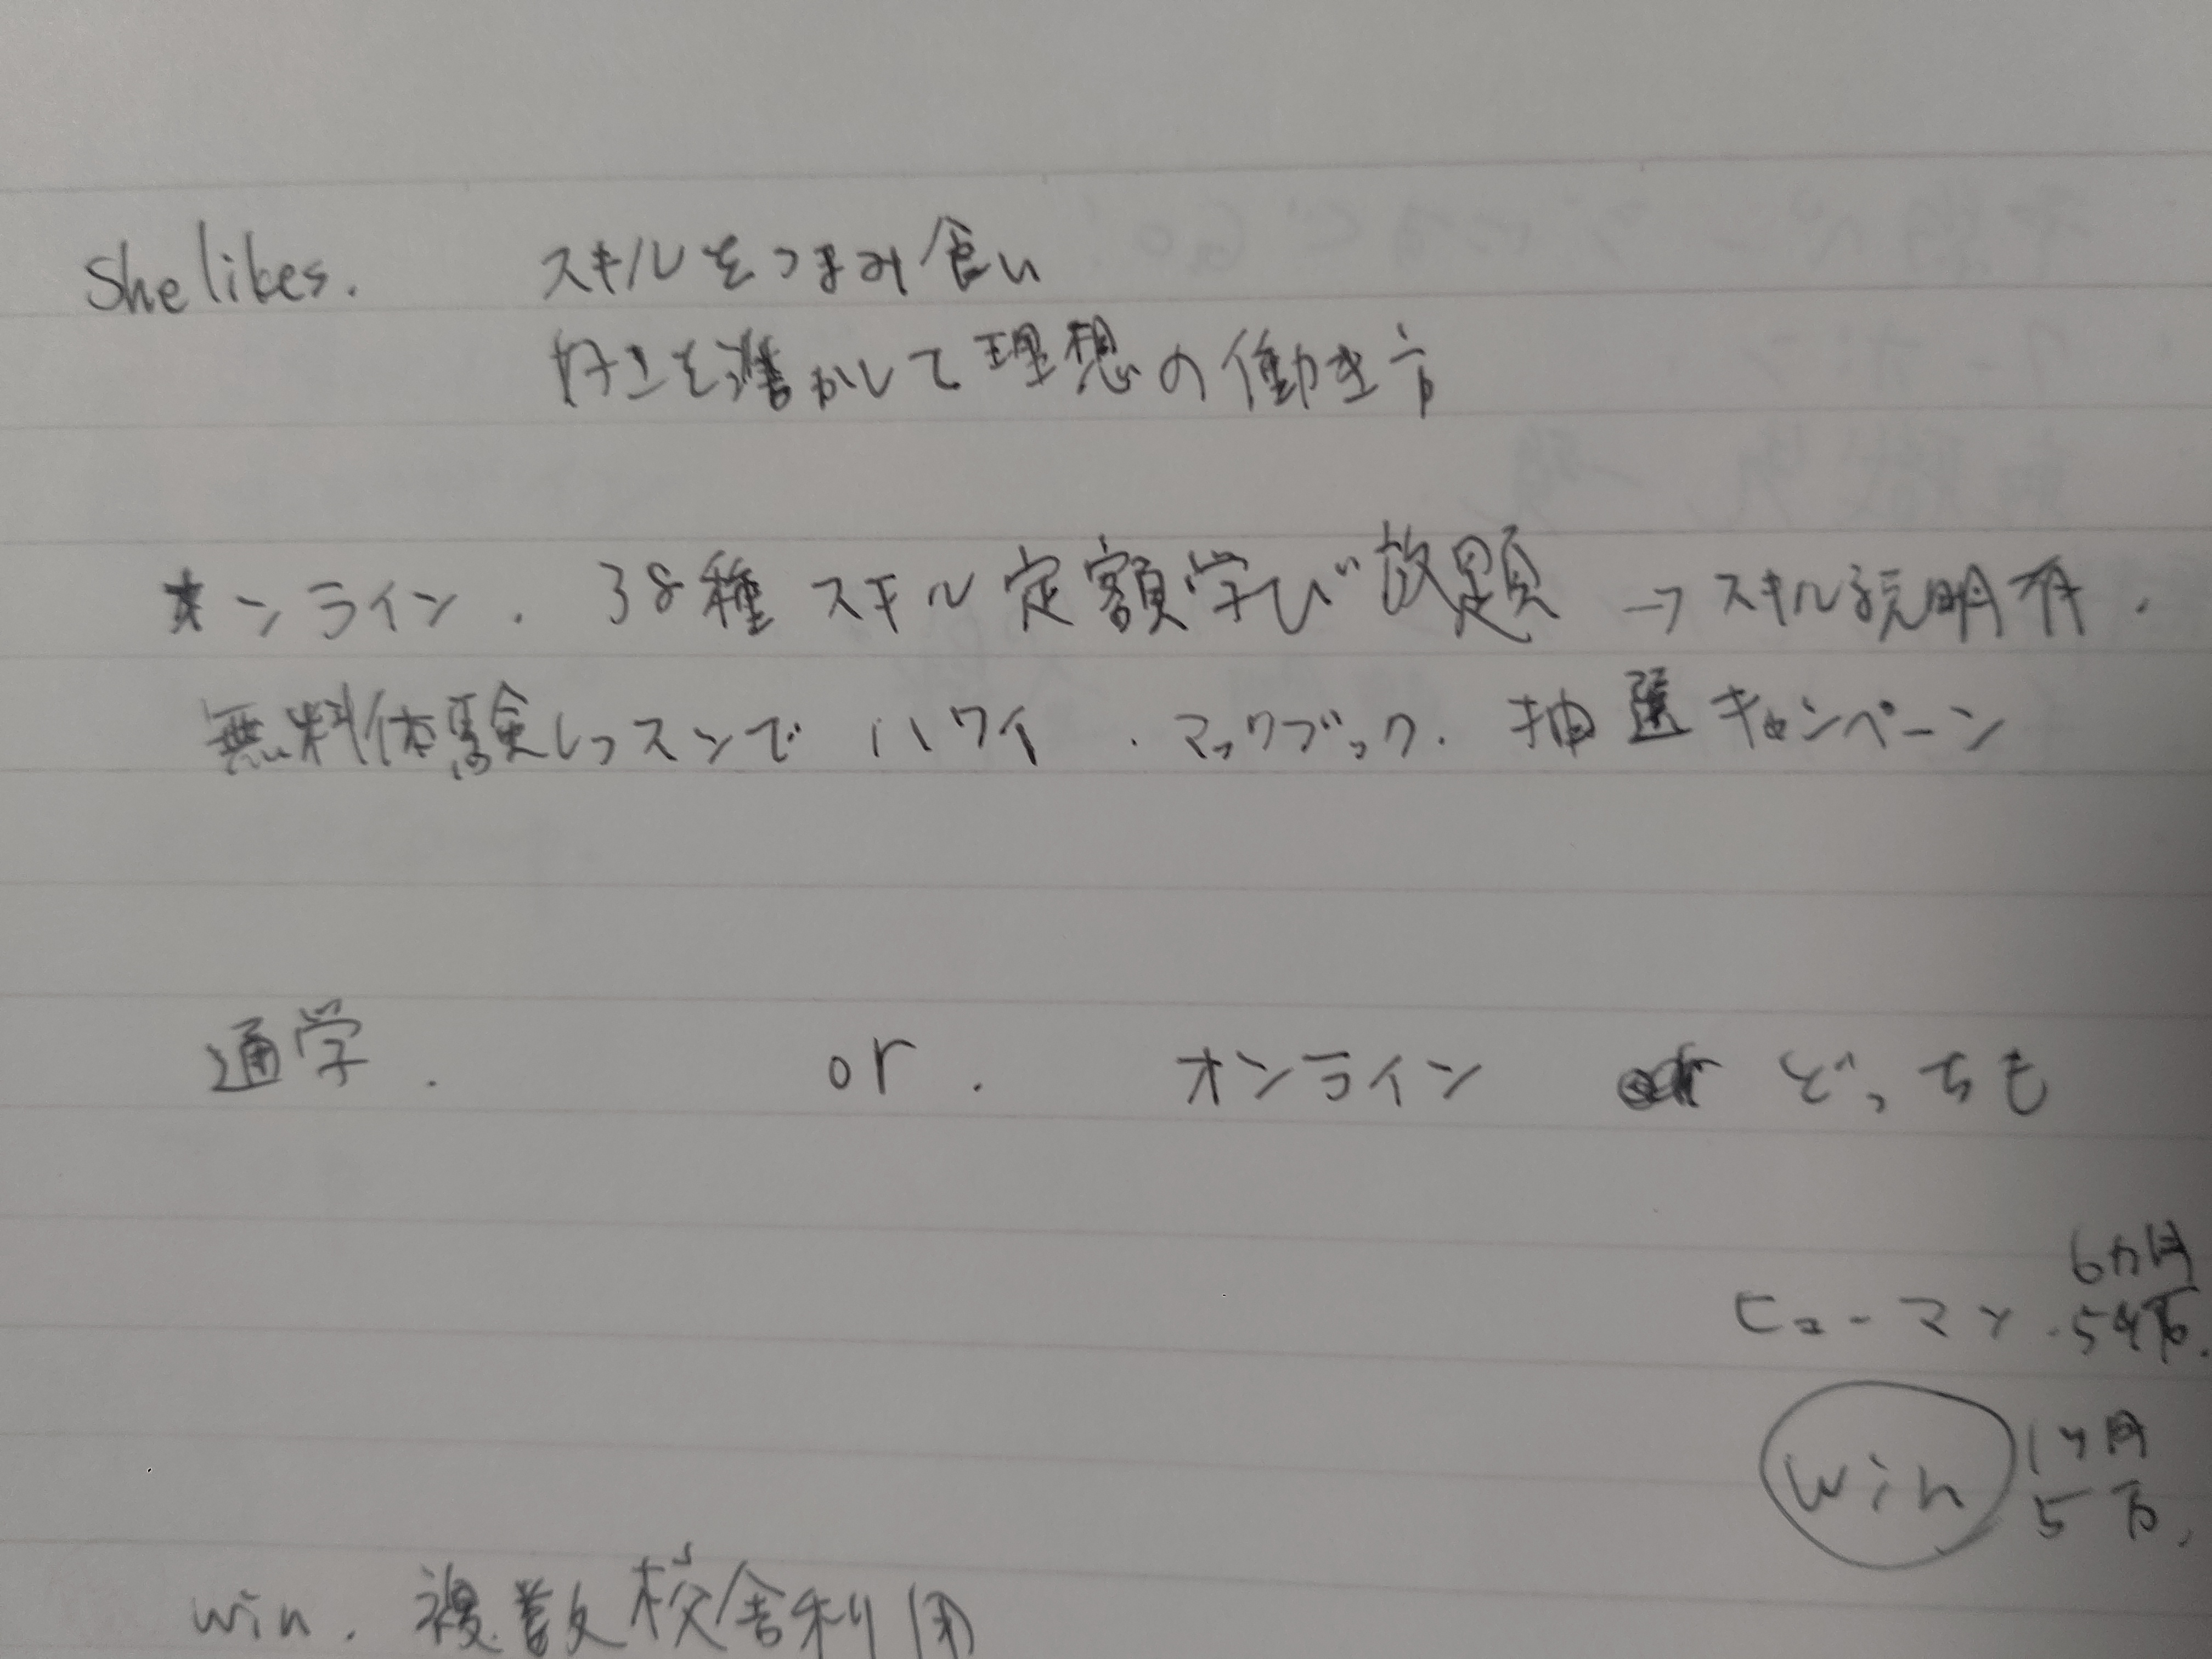 She likes. スキルをつまみ食い
好きを活かして理想の働き方
オンライン. 38種スキル定額学び放題 → スキル説明有.
無料体験レッスンで ハワイ . マックブック. 抽選キャンペーン
通学. or. オンライン どっちも
6カ月
ヒューマン. 54万.
win 1ヶ月
5万.
win. 複数校舎利用